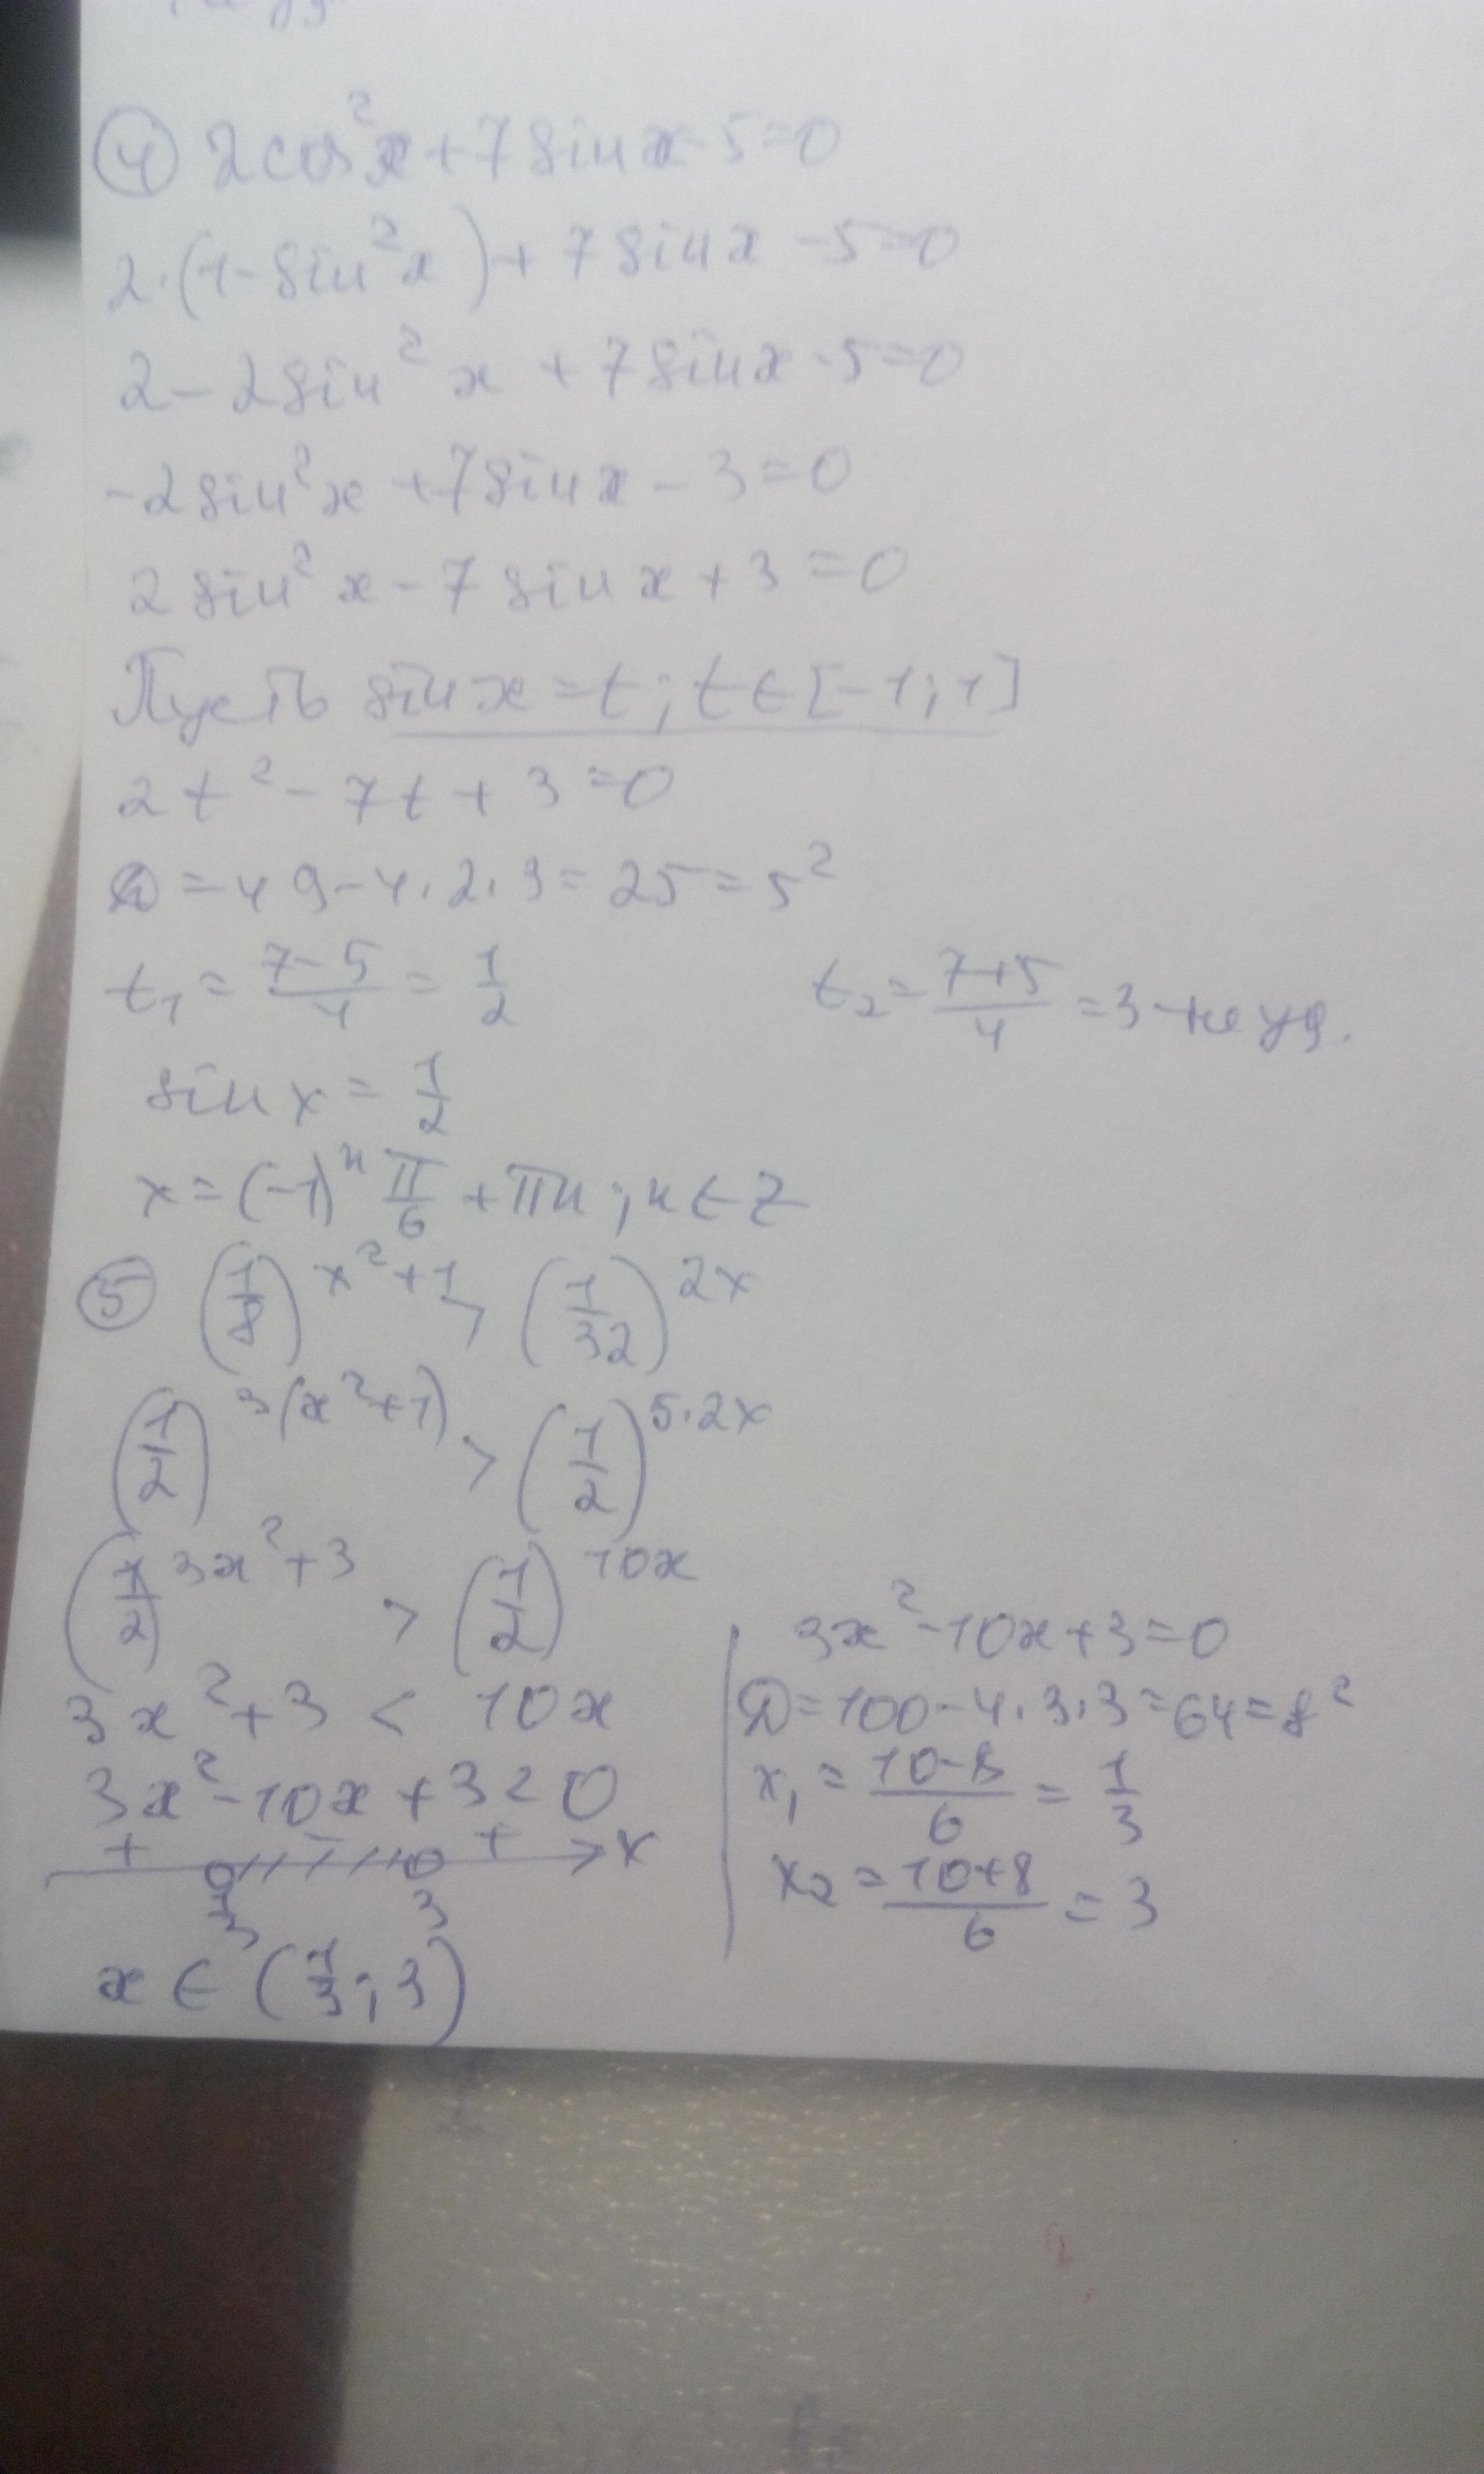 ④ 2cos²x+7sinx-5=0
2·(1-sin²x)+7sinx-5=0
2-2sin²x+7sinx-5=0
-2sin²x+7sinx-3=0
2sin²x-7sinx+3=0
Пусть sinx=t; t∈[-1;1]
2t²-7t+3=0
D=49-4·2·3=25=5²
t₁=(7-5)/4=1/2 t₂=(7+5)/4=3-не уд.
sinx=1/2
x=(-1)ⁿ π/6+πn; n∈Z
⑤ (1/8)^(x²+1)>(1/32)^(2x)
(1/2)^(3(x²+1))>(1/2)^(5·2x)
(1/2)^(3x²+3)>(1/2)^(10x)
3x²+3<10x
3x²-10x+3<0
+ - + x
1/3 3
x∈(1/3;3)
3x²-10x+3=0
D=100-4·3·3=64=8²
x₁=(10-8)/6=1/3
x₂=(10+8)/6=3